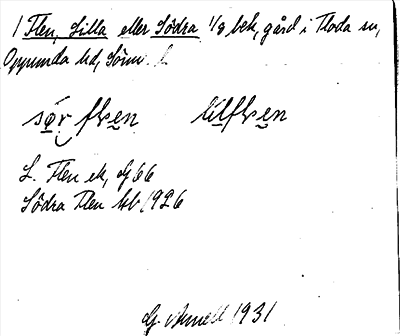 1 Flen, Lilla eller Södra 1/8 bek, gård i Floda sn,
Oppunda hd, Söml.
sør flen lilflen
L. Flen ek, Gf 66
Södra Flen kb 1926
G. Arnell 1931